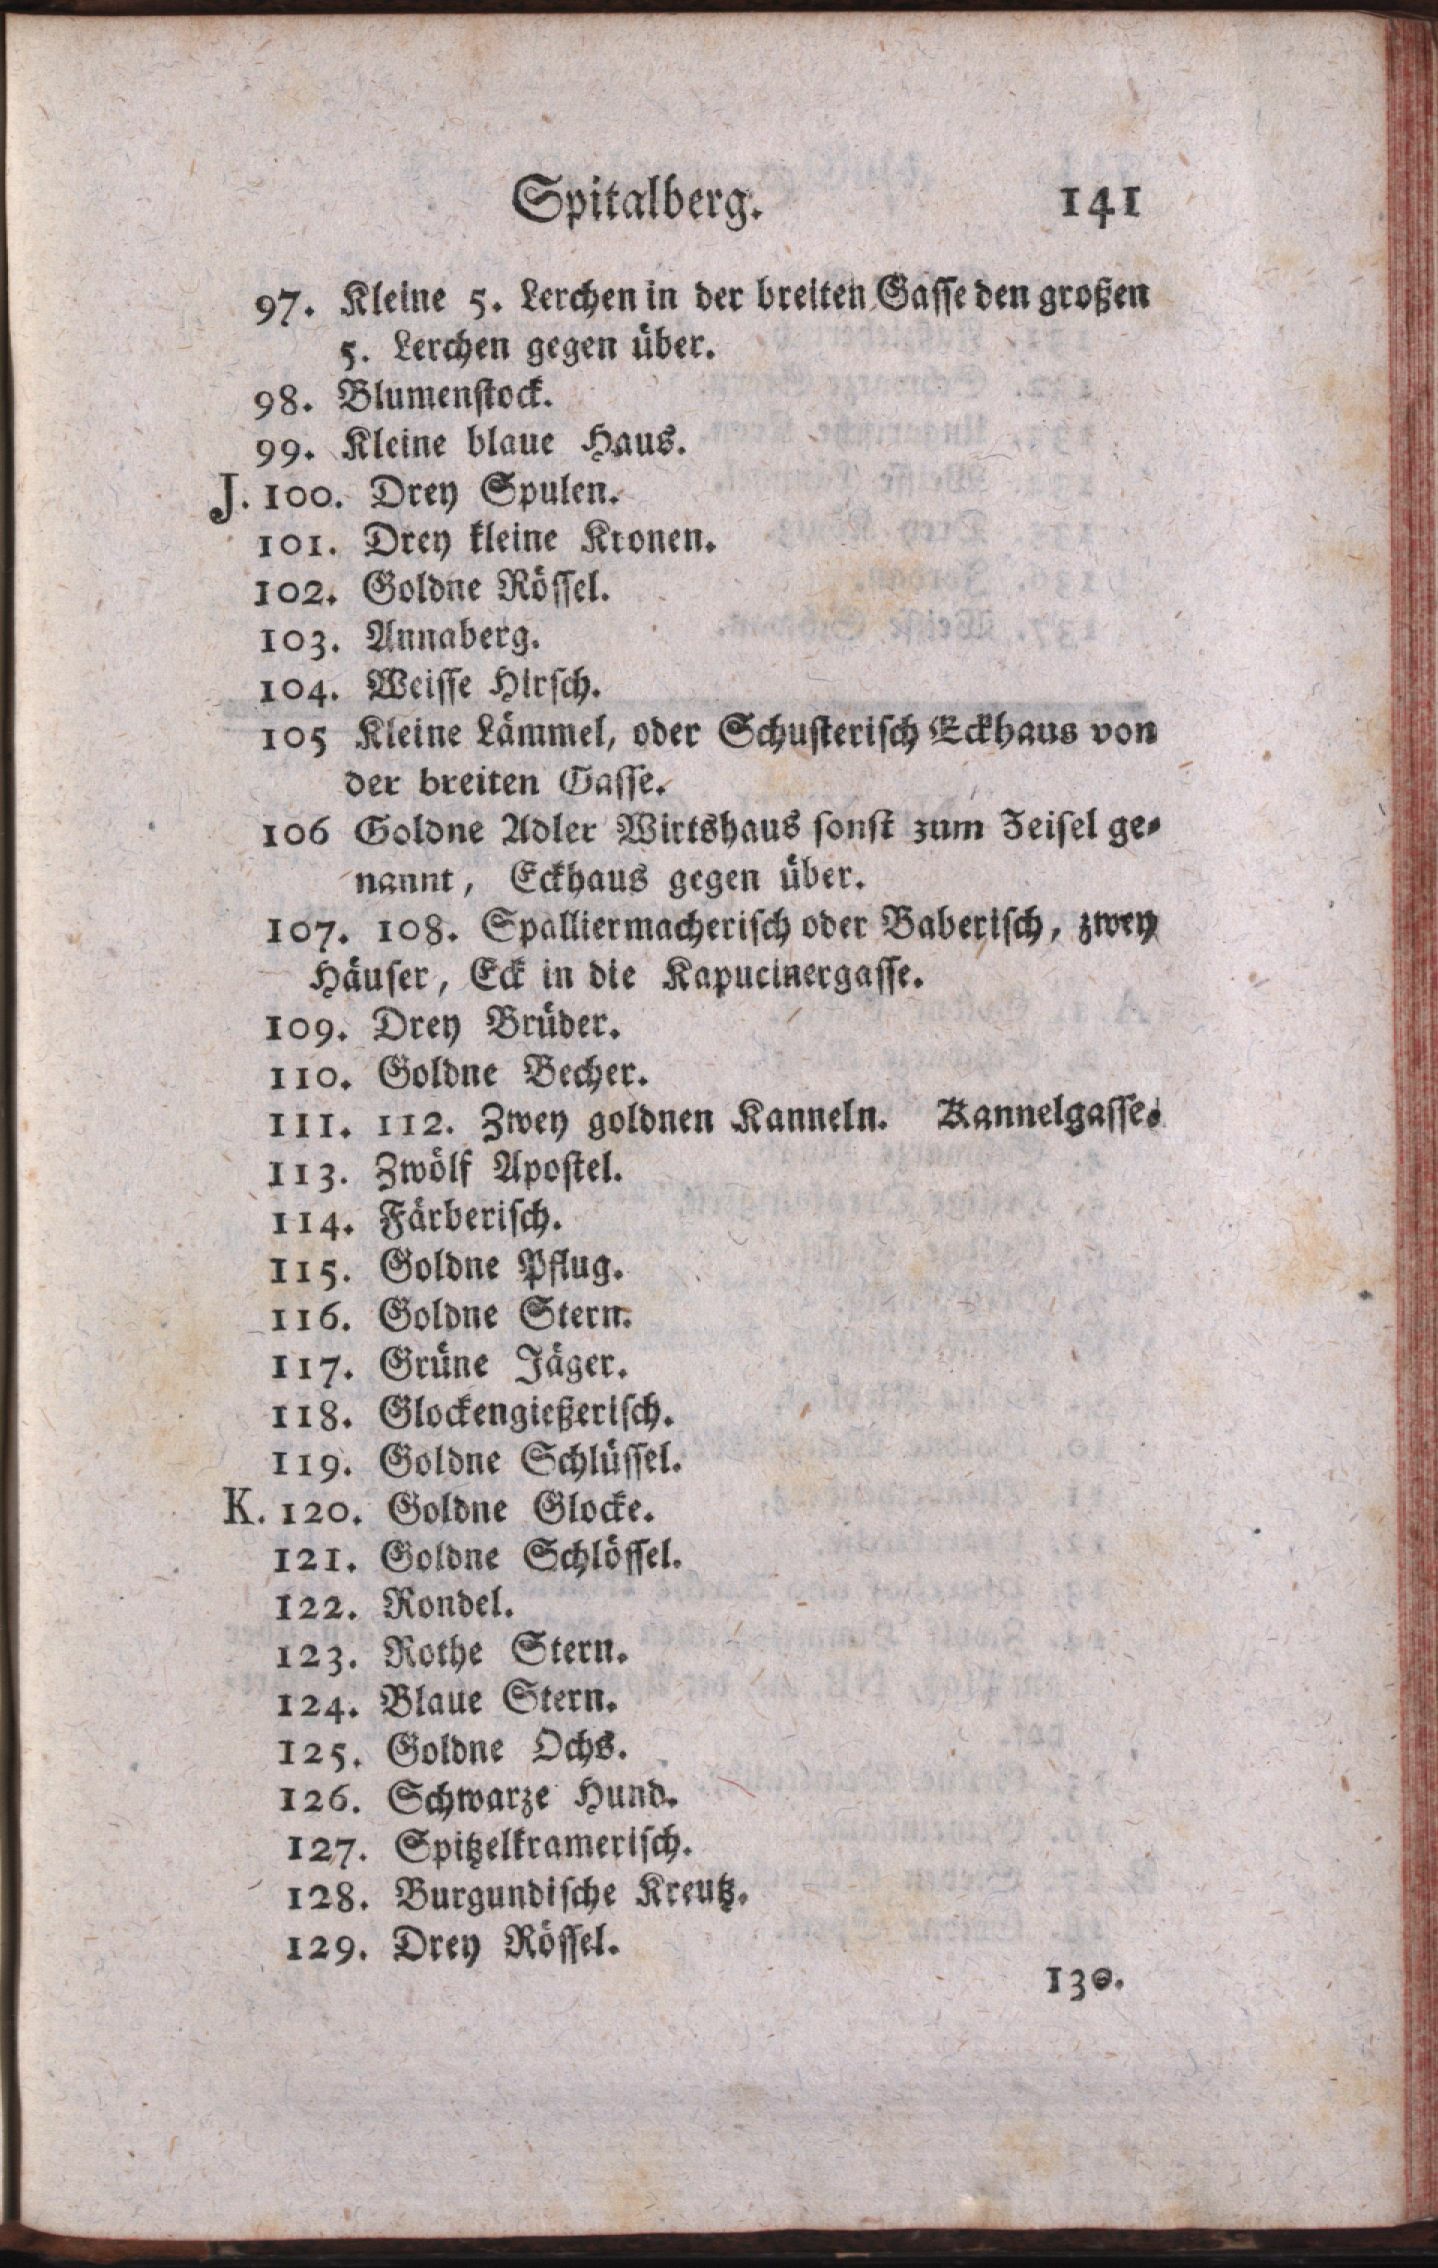 Spitalberg. 141
97. Kleine 5. Lerchen in der breiten Gasse den großen
5. Lerchen gegen über.
98. Blumenstock.
99. Kleine blaue Haus.
J. 100. Drey Spulen.
101. Drey kleine Kronen.
102. Goldne Rössel.
103. Annaberg.
104. Weisse Hirsch.
105 Kleine Lämmel, oder Schusterisch Eckhaus von
der breiten Gasse.
106 Goldne Adler Wirtshaus sonst zum Zeisel ge-
nannt, Eckhaus gegen über.
107. 108. Spalliermacherisch oder Baberisch, zwey
Häuser, Eck in die Kapucinergasse.
109. Drey Brüder.
110. Goldne Becher.
111. 112. Zwey goldnen Kanneln. Kannelgasse.
113. Zwölf Apostel.
114. Färberisch.
115. Goldne Pflug.
116. Goldne Stern.
117. Grüne Jäger.
118. Glockengießerisch.
119. Goldne Schlüssel.
K. 120. Goldne Glocke.
121. Goldne Schlössel.
122. Rondel.
123. Rothe Stern.
124. Blaue Stern.
125. Goldne Ochs.
126. Schwarze Hund.
127. Spitzelkramerisch.
128. Burgundische Kreutz.
129. Drey Rössel.
130.